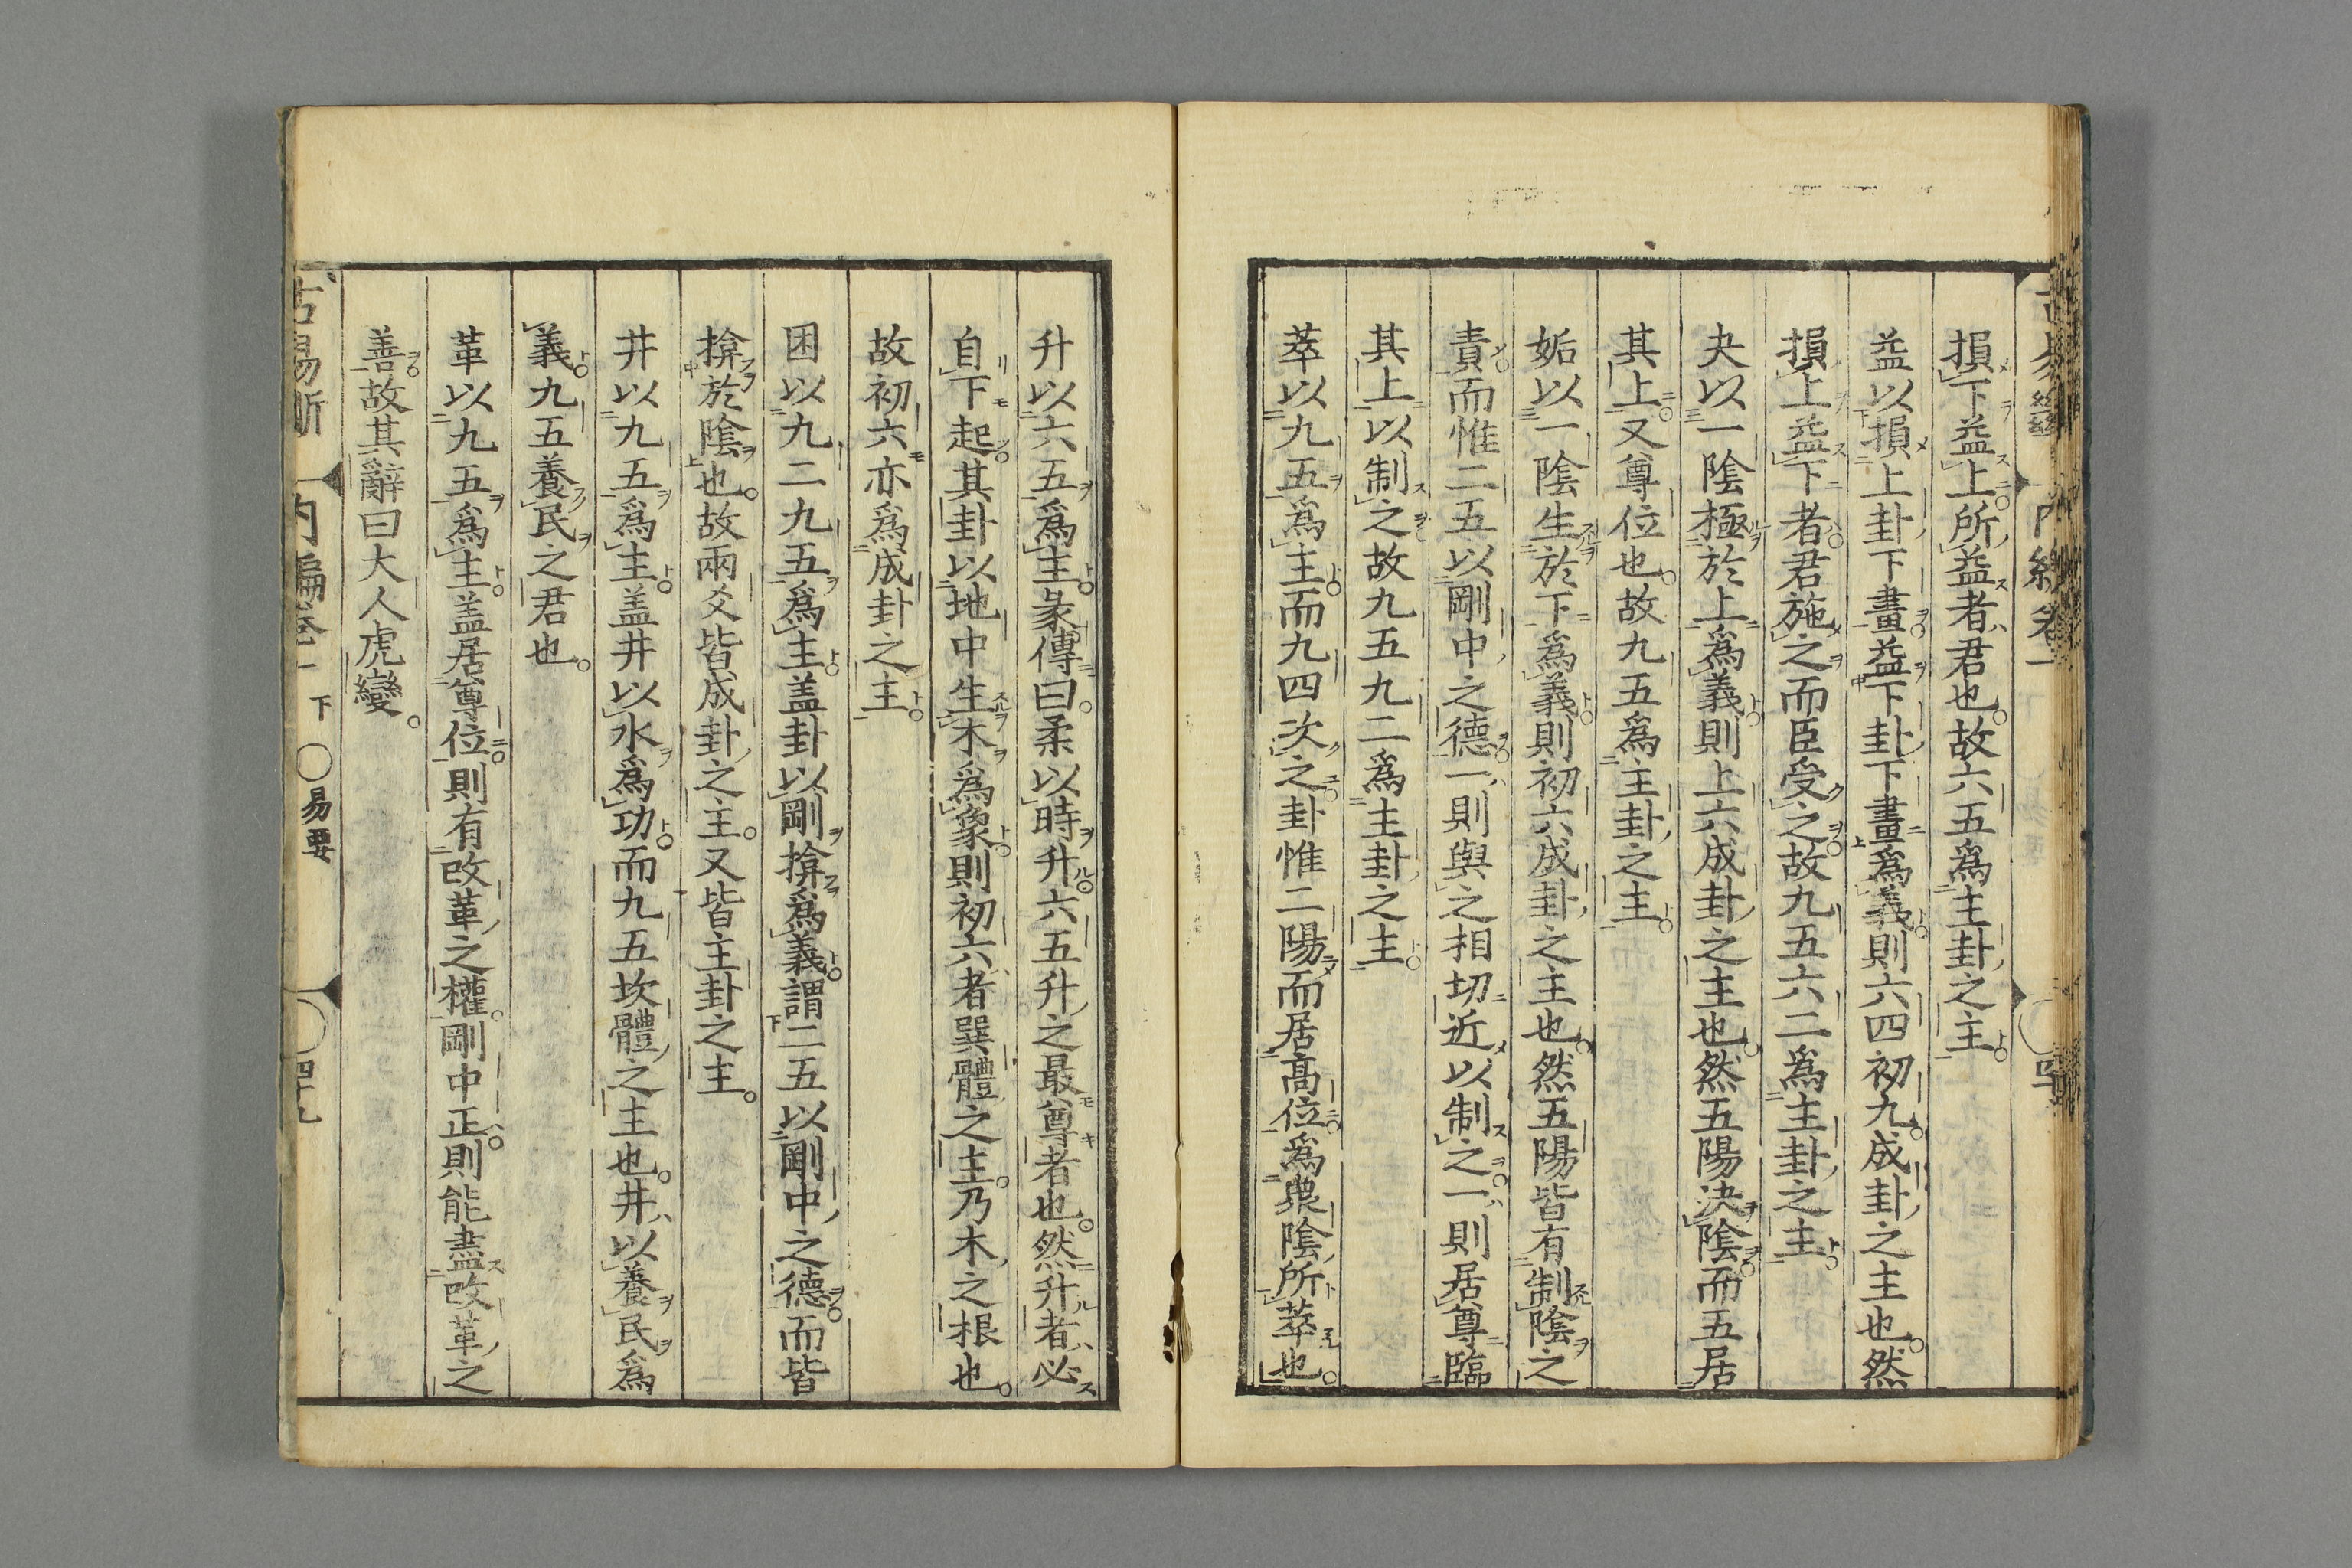 損下益上所益者君也故六五爲主卦之主
益以損上卦下畫益下卦下畫爲義則六四初九成卦之主也然
損上益下者君施之而臣受之故九五六二爲主卦之主
夬以一陰極於上爲義則上六成卦之主也然五陽決陰而五居
其上又尊位也故九五爲主卦之主
姤以一陰生於下爲義則初六成卦之主也然五陽皆有制陰之
責而惟二五以剛中之德一則與之相切近以制之一則居尊臨
其上以制之故九五九二爲主卦之主
萃以九五爲主而九四次之卦惟二陽而居高位爲衆陰所萃也
升以六五爲主彖傳曰柔以時升六五升之最尊者也然升者必
自下起其卦以地中生木爲象則初六者巽體之主乃木之根也
故初六亦爲成卦之主
困以九二九五爲主盖卦以剛揜爲義謂二五以剛中之德而皆
揜於陰也故兩爻皆成卦之主又皆主卦之主
井以九五爲主盖井以水爲功而九五坎體之主也井以養民爲
義九五養民之君也
革以九五爲主盖居尊位則有改革之權剛中正則能盡改革之
善故其辭曰大人虎變
古易斷 内編卷一 下 ○易要 四十九